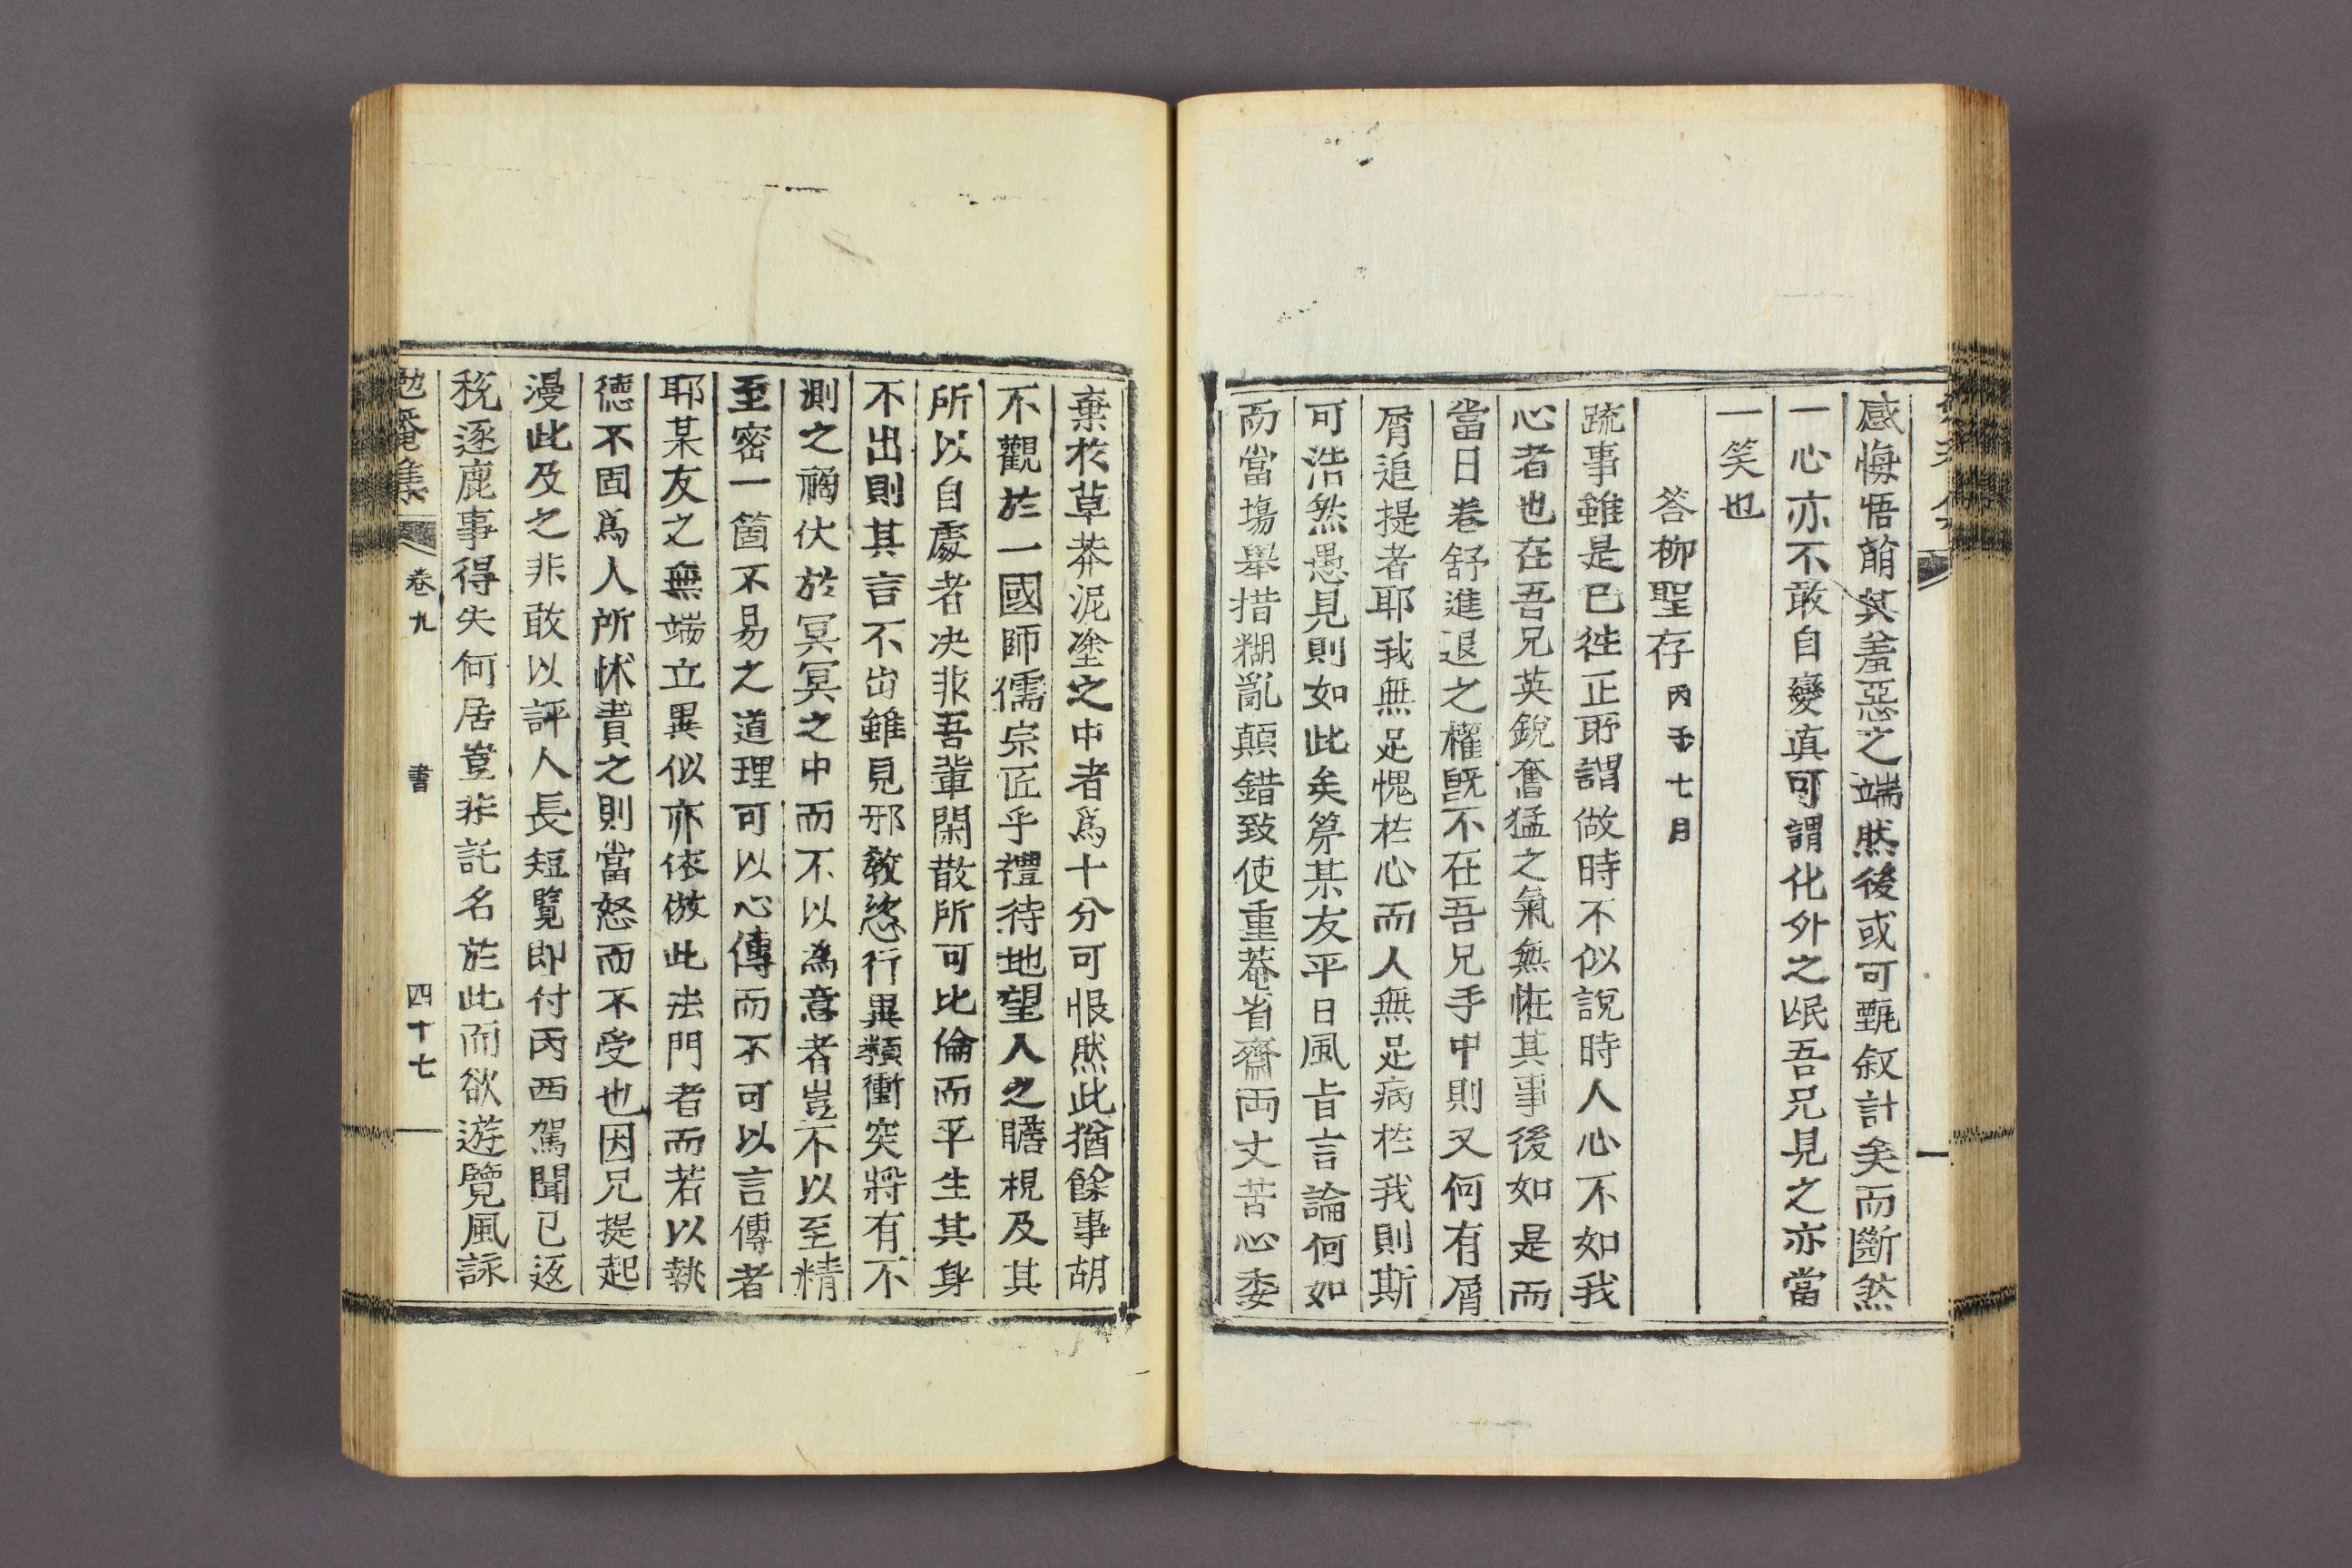 感悔悟萠其羞惡之端然後或可甄叙計矣而斷然
一心亦不敢自變眞可謂化外之氓吾兄見之亦當
一笑也
答柳聖存丙子七月
䟽事雖是已徃正所謂做時不似說時人心不如我
心者也在吾兄英銳奮猛之氣無恠其事後如是而
當日卷舒進退之權旣不在吾兄手中則又何有屑
屑追提者耶我無足愧於心而人無足病於我則斯
可浩然愚見則如此矣筭某友平日風旨言論何如
而當塲擧措糊亂顛錯致使重菴省齋両丈苦心委
棄於草莽泥塗之中者爲十分可恨然此猶餘事胡
不觀於一國師儒宗匠乎禮待地望人之瞻視及其
所以自處者决非吾輩閑散所可比倫而平生其身
不出則其言不出雖見邪敎恣行異類衝突將有不
測之禍伏於冥冥之中而不以爲意者豈不以至精
至密一箇不易之道理可以心傳而不可以言傳者
耶某友之無端立異似亦依倣此法門者而若以執
德不固爲人所怵責之則當怒而不受也因兄提起
漫此及之非敢以評人長短覽即付丙西駕聞已返
稅逐鹿事得失何居豈非託名於此而欲遊覽風詠
勉菴集
卷九
書
四十七